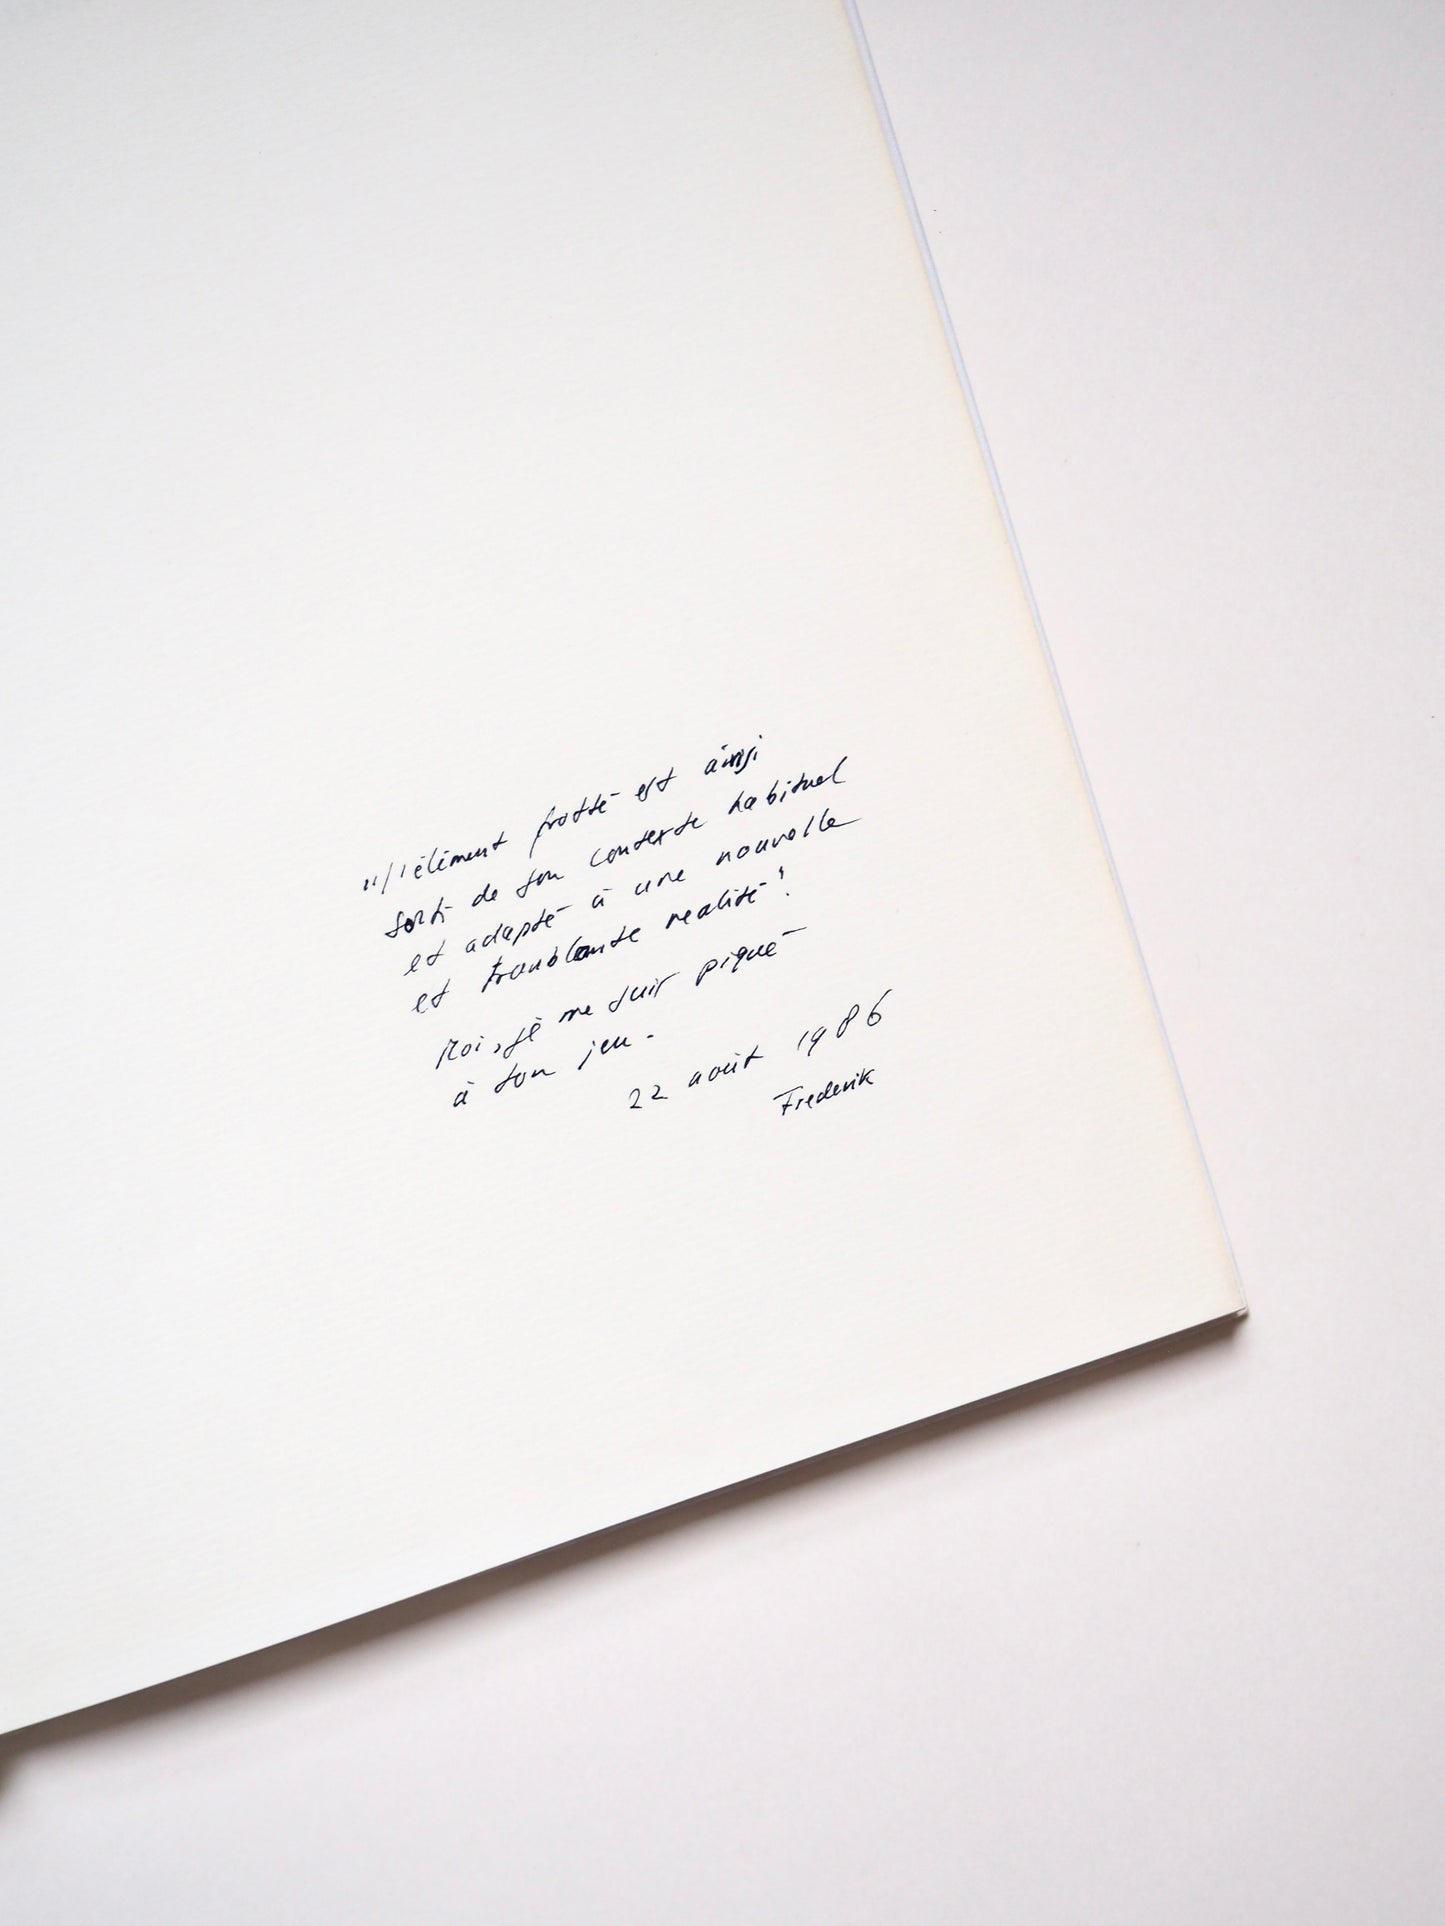 "l'élément frotté est ainsi
sorti de son contexte habituel
et adapté à une nouvelle
et troublante realité"
Moi, je me suis piqué
à son jeu.
22 août 1986
Frederik